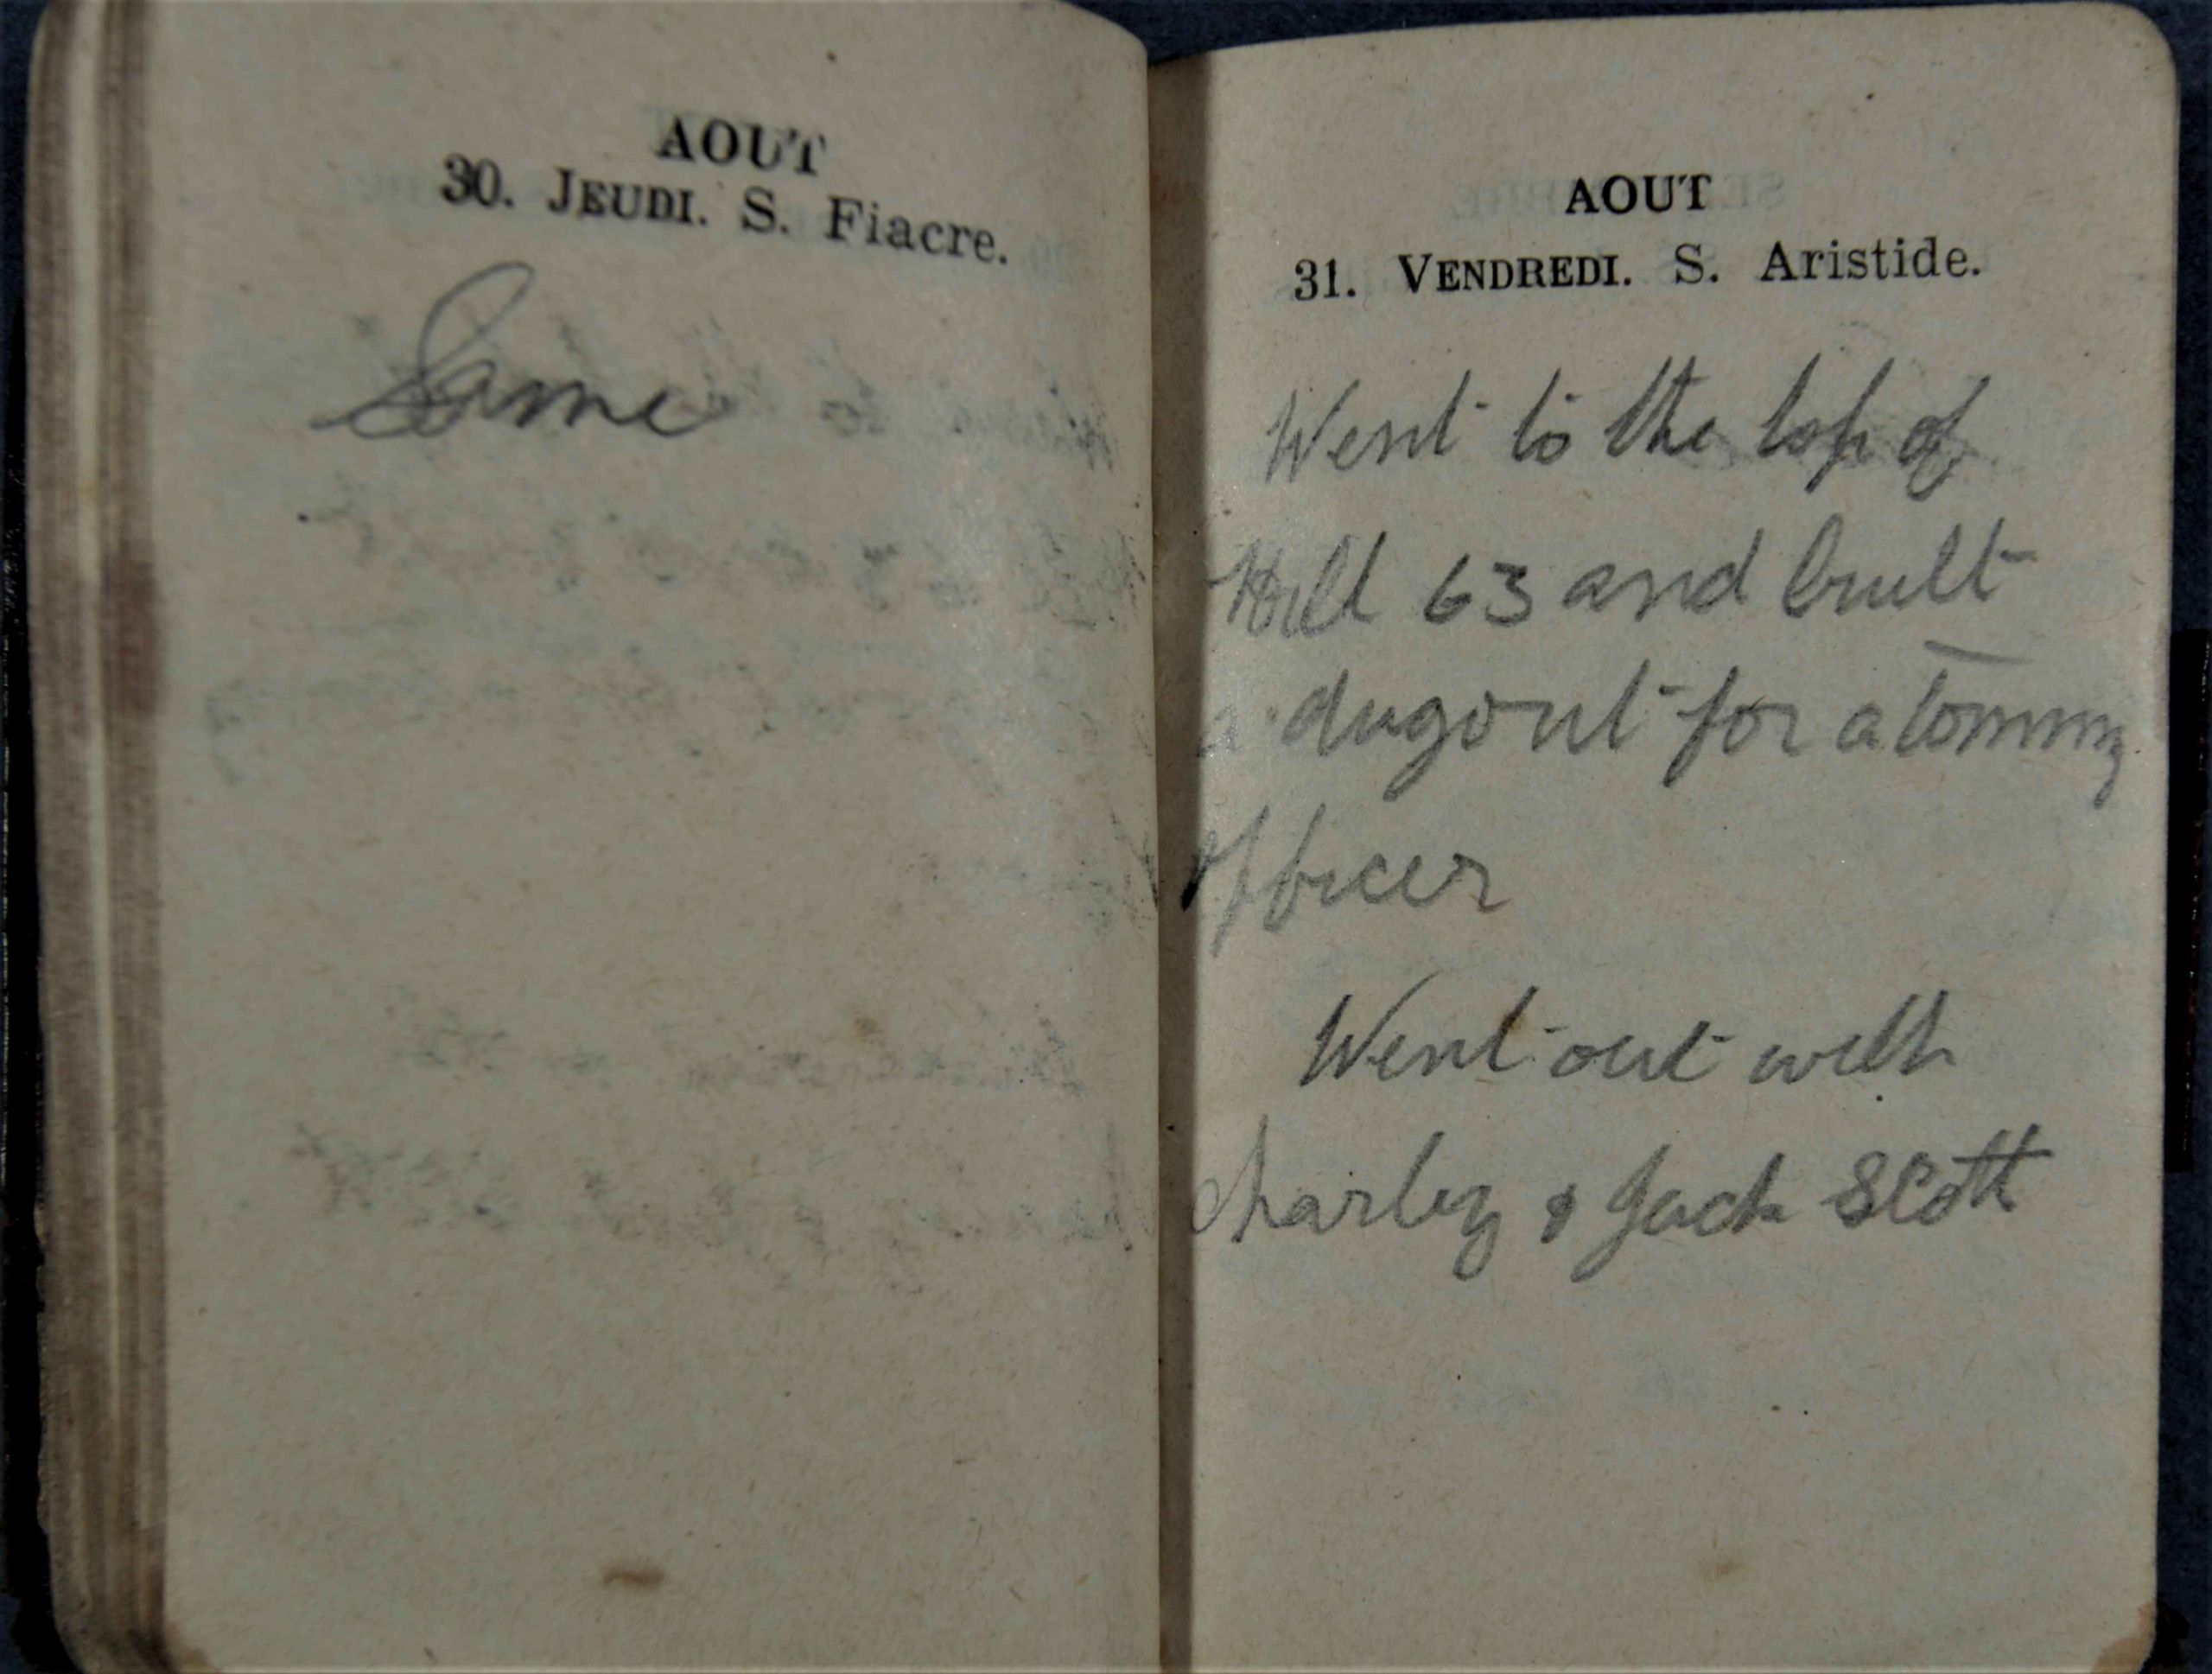 AOUT
30. JEUDI. S. Fiacre.
Same
AOUT
31. VENDREDI. S. Aristide.
Went to the top of
Hill 63 and built
a dugout for a tommy
officer
Went out with
Charley & Jack Scott